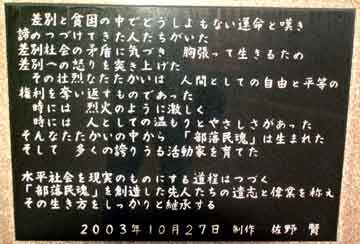 差別と貧困の中でどうしよもない運命と嘆き
諦めつづけてきた人たちがいた
差別社会の矛盾に気づき 胸張って生きるため
差別への怒りを突き上げた
その壮烈なたたかいは 人間としての自由と平等の
権利を奪い返すものであった
時には 烈火のように激しく
時には 人としての温もりとやさしさがあった
そんなたたかいの中から 「部落民魂」は生まれた
そして 多くの誇りうる活動家を育てた
水平社会を現実のものにする道程はつづく
「部落民魂」を創造した先人たちの遺志と偉業を称え
その生き方をしっかりと継承する
2003年10月27日 制作 佐野 賢